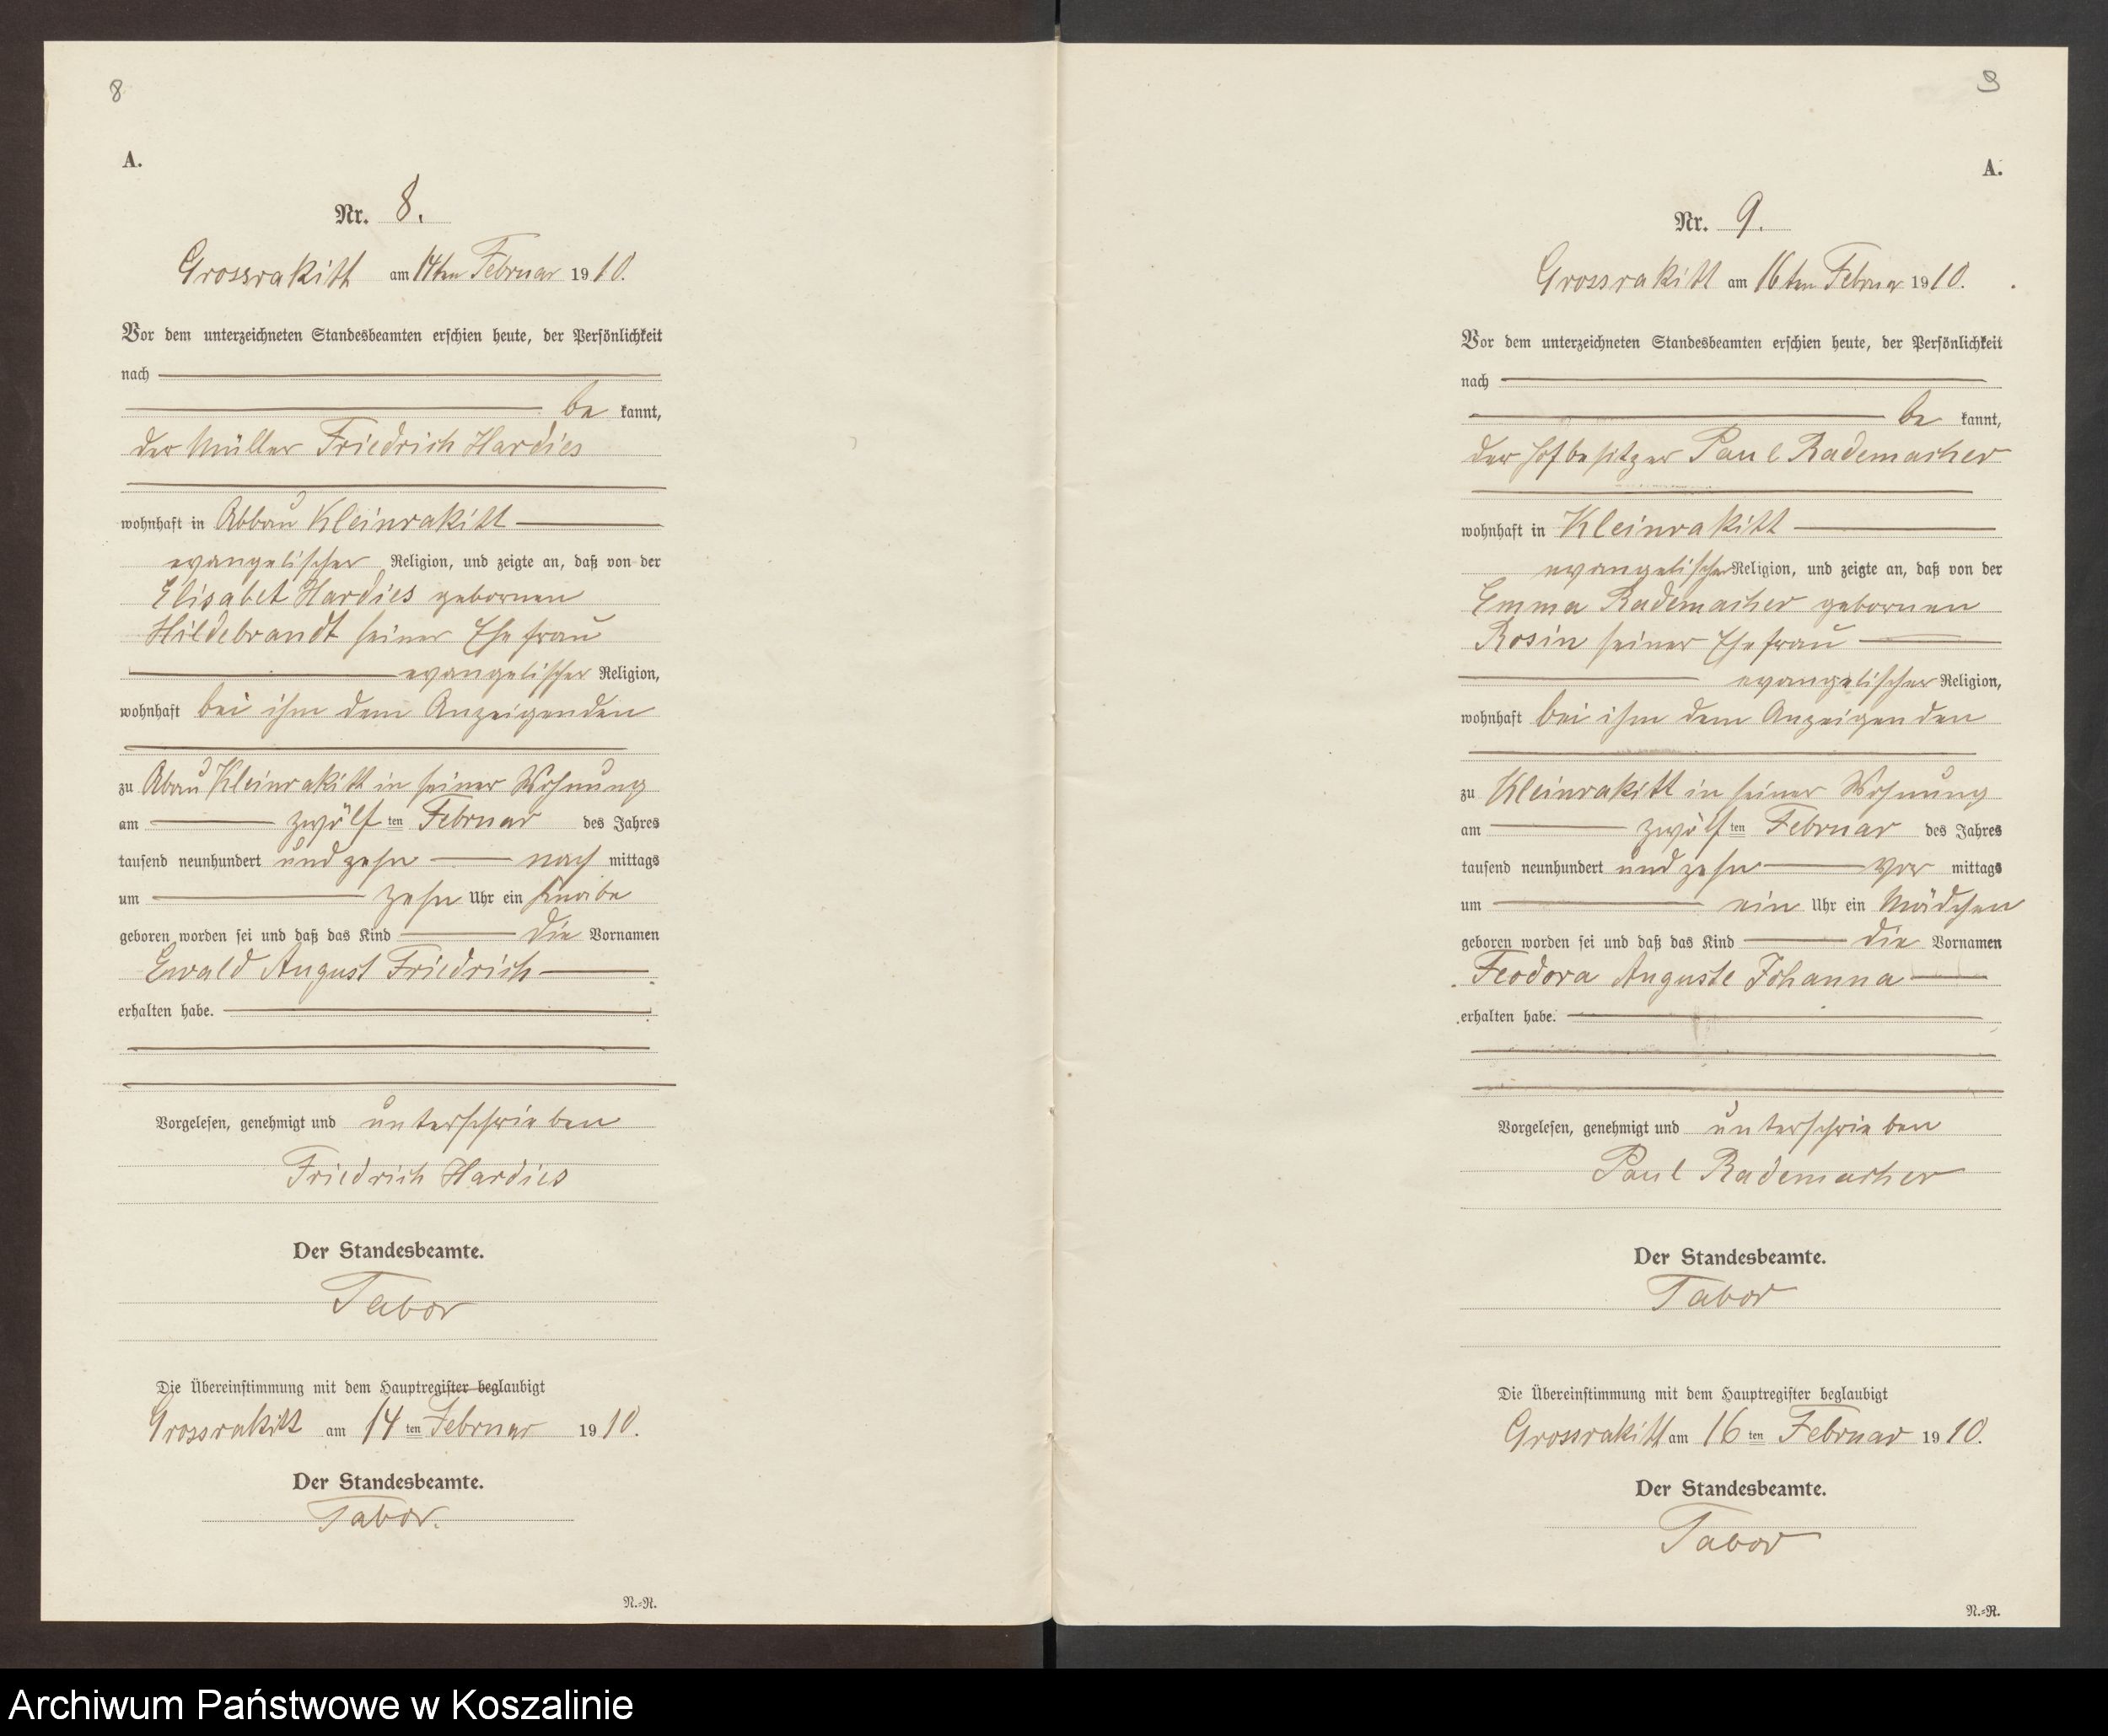 8
A.
Nr. 8.
Grossrakitt am 14ten Februar 1910.
Vor dem unterzeichneten Standesbeamten erschien heute, der Persönlichkeit
nach
be kannt,
der Müller Friedrich Hardies
wohnhaft in Abbau Kleinrakitt
evangelischer Religion, und zeigte an, daß von der
Elisabet Hardies gebornen
Hildebrandt seiner Ehefrau
evangelischer Religion,
wohnhaft bei ihm dem Anzeigenden
zu Abau Kleinrakitt in seiner Wohnung
am zwölf ten Februar des Jahres
tausend neunhundert und zehn nach mittags
um zehn Uhr ein Knabe
geboren worden sei und daß das Kind die Vornamen
Ewald August Friedrich
erhalten habe.
Vorgelesen, genehmigt und unterschrieben
Friedrich Hardies
Der Standesbeamte.
Tabor
Die Übereinstimmung mit dem Hauptregister beglaubigt
Grossrakitt am 14 ten Februar 1910.
Der Standesbeamte.
Tabor.
N.-R.
9
A.
Nr. 9.
Grossrakitt am 16ten Februar 1910.
Vor dem unterzeichneten Standesbeamten erschien heute, der Persönlichkeit
nach
be kannt,
der Hofbesitzer Paul Rademacher
wohnhaft in Kleinrakitt
evangelischer Religion, und zeigte an, daß von der
Emma Rademacher gebornen
Rosin seiner Ehefrau
evangelischer Religion,
wohnhaft bei ihm dem Anzeigenden
zu Kleinrakitt in seiner Wohnung
am zwölf ten Februar des Jahres
tausend neunhundert und zehn vor mittags
um ein Uhr ein Mädchen
geboren worden sei und daß das Kind die Vornamen
Feodora Auguste Johanna
erhalten habe.
Vorgelesen, genehmigt und unterschrieben
Paul Rademacher
Der Standesbeamte.
Tabor
Die Übereinstimmung mit dem Hauptregister beglaubigt
Grossrakitt am 16 ten Februar 1910.
Der Standesbeamte.
Tabor
N.-R.
Archiwum Państwowe w Koszalinie